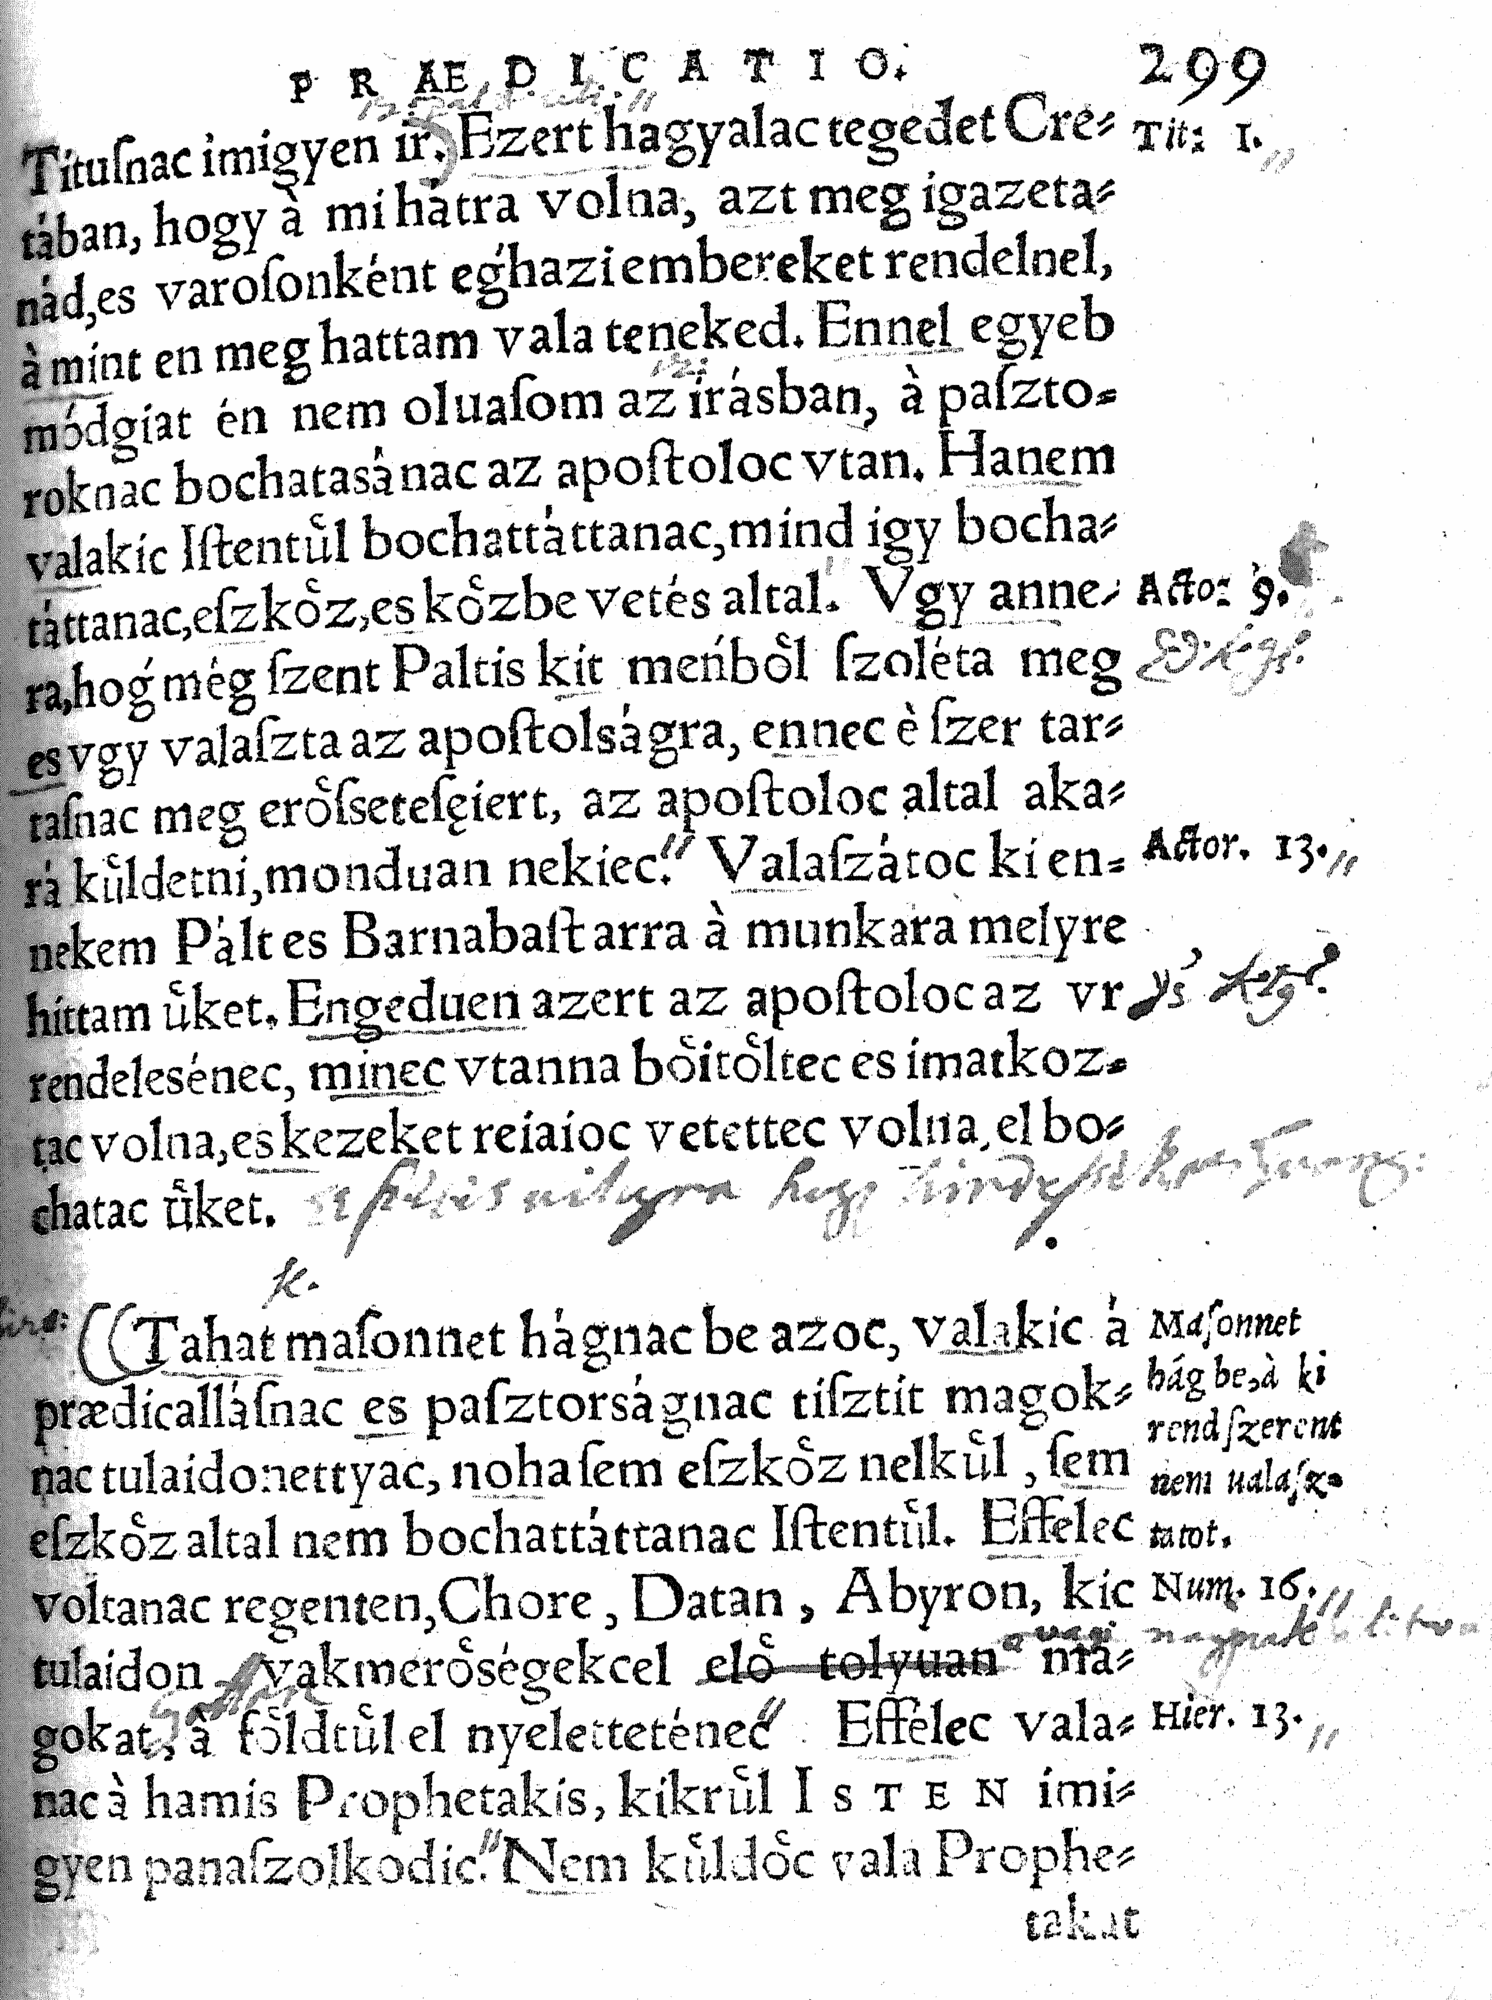 PRÆDICATIO. 299
Tituſnac imigyen ír. Ezert hagyalac tegedet Cre⸗ Tit: 1.
tában, hogy à mi hátra volna, azt meg igazeta⸗
nád, es varoſonként eǵhazi embereket rendelnel,
à mint en meg hattam vala teneked. Ennel egyeb
módgiat én nem oluaſom az írásban, à paſzto⸗
roknac bochatasánac az apoſtoloc vtan. Hanem
valakic Iſtentuͤl bochattáttanac, mind igy bocha⸗
táttanac, eſzkoͤz, es koͤzbe vetés altal. Vgy anne⸗ Acto: 9.
ra, hoǵ még ſzent Paltis kit meńboͤl ſzoléta meg
es vgy valaſzta az apoſtolságra, ennec è ſzer tar⸗
taſnac meg eroͤſseteſęiert, az apoſtoloc altal aka⸗
rá kuͤldetni, monduan nekiec. Valaſzátoc ki en⸗ Actor. 13.
nekem Pált es Barnabaſt arra à munkara melyre
híttam uͤket. Engeduen azert az apoſtoloc az vr
rendelesénec, minec vtanna boͤitoͤltec es imatkoz⸗
tac volna, es kezeket reiaioc vetettec volna, el bo⸗
chatac uͤket.
Tahat maſonnet hágnac be azoc, valakic á Maſonnet
prædicalláſnac es paſztorságnac tiſztit magok⸗ hág be, à ki
rend ſzerent
nac tulaidonettyac, noha ſem eſzkoͤz nelkuͤl, ſem nem ualaſz⸗
eſzkoͤz altal nem bochattáttanac Iſtentuͤl. Effelec tatot.
voltanac regenten, Chore, Datan, Abyron, kic Num. 16.
tulaidon vakmeroͤségekcel eloͤ tolyuan ma⸗
gokat, à foͤldtuͤl el nyeletteténec Effélec vala⸗ Hier. 13.
nac à hamis Prophetakis, kikruͤl ISTEN imi⸗
gyen panaſzolkodic. Nem kuͤldoͤc vala Prophe⸗
takat